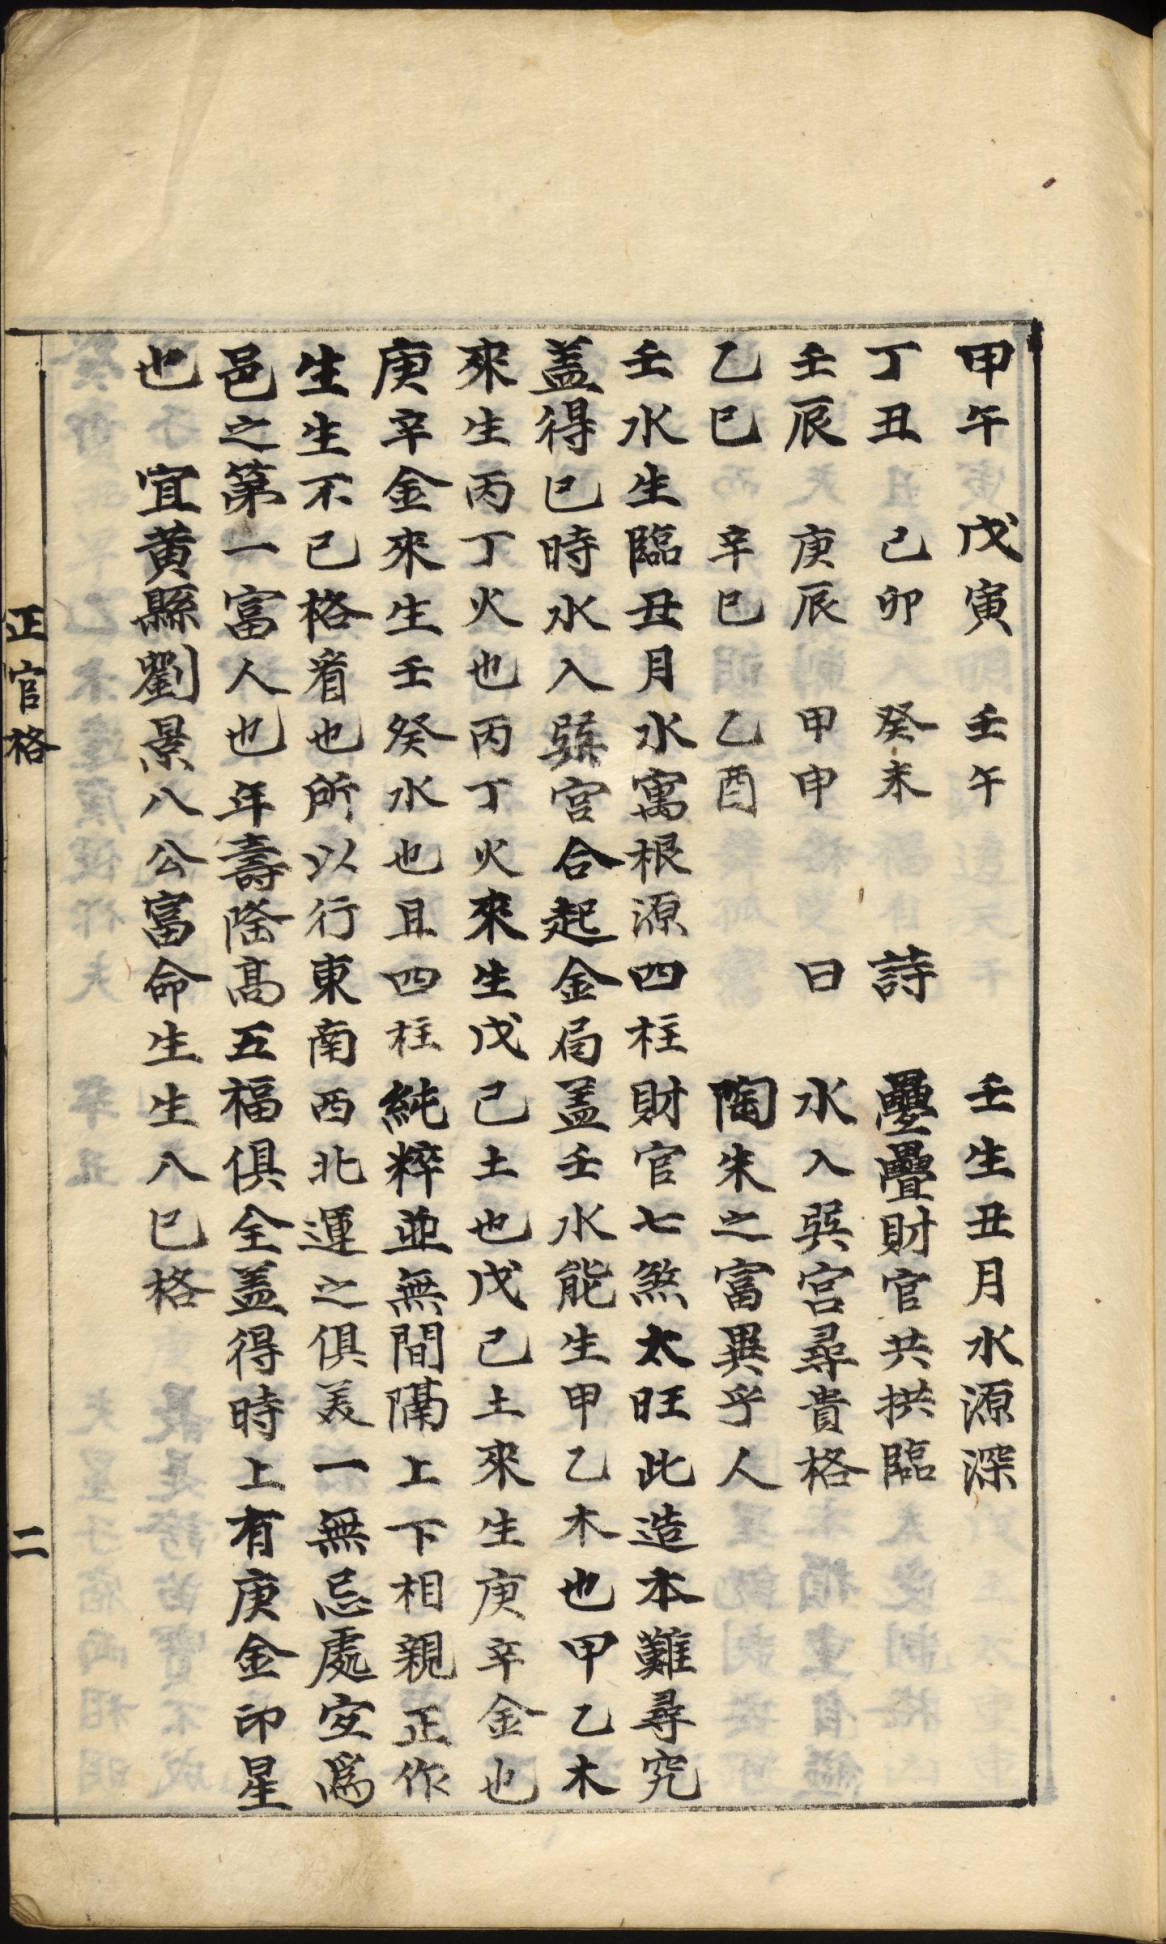 甲午　戊寅　壬午　　　壬生丑月水源深
丁丑　己卯　癸未　　詩　疊疊財官共拱臨
壬辰　庚辰　甲申　　曰　水入巽宮尋貴格
乙巳　辛巳　乙酉　　　陶朱之富異乎人
壬水生臨丑月水寓根源四柱財官七煞太旺此造本難尋究
蓋得巳時水入巽宮合起金局蓋壬水能生甲乙木也甲乙木
來生丙丁火也丙丁火來生戊己土也戊己土來生庚辛金也
庚辛金來生壬癸水也且四柱純粹並無間隔上下相親正作
生生不已格看也所以行東南西北運之俱美一無忌處宜爲
邑之第一富人也年壽隆高五福俱全蓋得時上有庚金印星
也　宜黃縣劉景八公富命生生八巳格
正官格　二